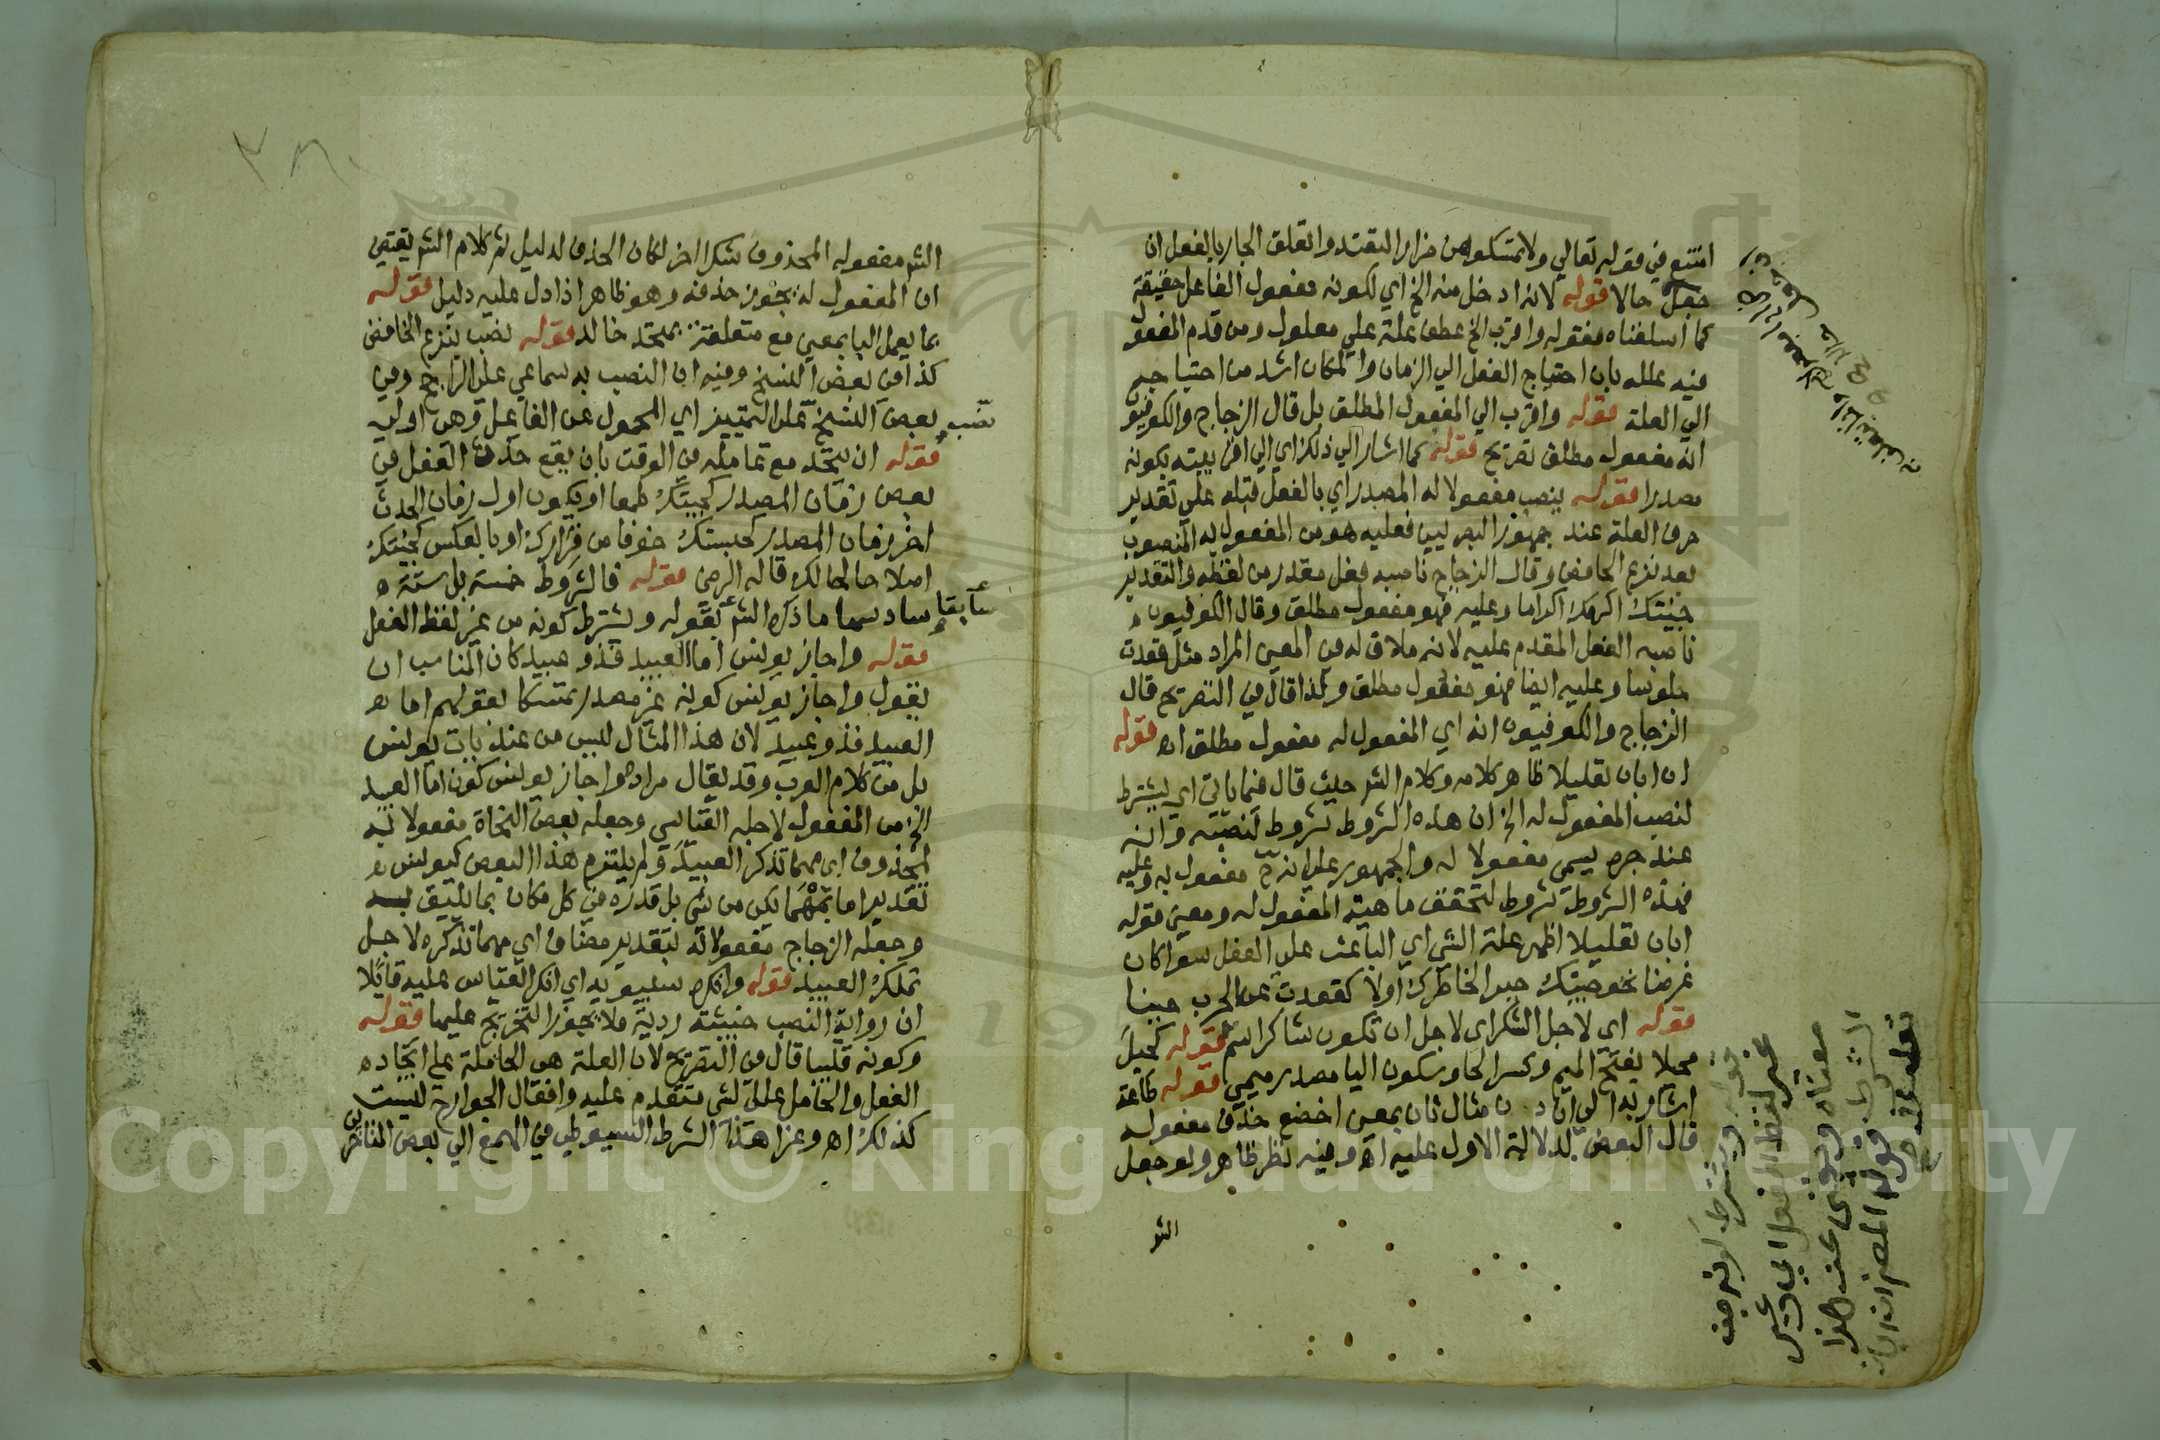 امتنع في قوله تعالي ولا تمسكوهن ضرارا لتعتدوا تعلق الجار بالفعل ان
جعل حالا قوله لانه ادخل منه الخ اي لكونه مفعول الفاعل حقيقة
كما اسلفناه فقوله واقرب الخ عطف علة علي معلول ومن قدم المفعول
فيه علله بان احتياج الفعل الي الزمان والمكان اشد من احتياجه
الي العلة قوله واقرب الي المفعول المطلق بل قال الزجاج والكوفيون
انه مفعول مطلق تصريح قوله كما اشار الي ذلك اي الي اقربيته بكونه
مصدرا قوله ينصب مفعولا له المصدر اي بالفعل قبله علي تقدير
حرف العلة عند جمهور البصريين فعليه هو من المفعول به المنصوب
بعد نزع الخافض وقال الزجاج ناصبه فعل مقدر من لفظه والتقدير
جئتك اكرمك اكراما وعليه فهو مفعول مطلق وقال الكوفيون
ناصبه الفعل المقدم عليه لانه ملاق له في المعني المراد مثل قعدت
جلوسا وعليه ايضا فهو مفعول مطلق ولذا قال في التصريح قال
الزجاج والكوفيون انه اي المفعول له مفعول مطلق اه قوله
ان ابان تعليلا ظاهر كلامه وكلام الشر حيث قال فيما ياتي اي يشترط
لنصب المفعول له الخ ان هذه الشروط شروط لنصبه وانه
عند جره يسمي مفعولا له والجمهور علي انه ح مفعول به وعليه
فهذه الشروط شروط لتحقق ماهية المفعول له ومعني قوله
ابان تعليلا اظهر علة الشي اي الباعث علي الفعل سوا كان
غرضا نحو جئتك جبرا لخاطرك او لا كقعدت عن الحرب جبنا
قوله اي لاجل الشكر اي لاجل ان تكون شاكرا قوله كحيل
محلا بفتح الميم وكسر الحا وسكون اليا مصدر ميمي قوله طاعة
اشار به الي ان دن مثال ثان بمعني اخضع حذف مفعوله
قال البعض لدلالة الاول عليه اه وفيه نظر ظاهر ولو جعل
الشر
الشر مفعوله المحذوف شكرا اخر لكان الحذف لدليل ثم كلام الشر يقتضي
ان المفعول له يجوز حذفه وهو ظاهر اذا دل عليه دليل قوله
بما يعمل البا بمعني مع متعلقة بيتحد خالد قوله نصب بنزع الخافض
كذا في بعض النسخ وفيه ان النصب به سماعي علي الراجح وفي
بعض النسخ نصب علي التمييز اي المحمول عن الفاعل وهي اولي
قوله ان يتحد مع عامله في الوقت بان يقع حدث الفعل في
بعض زمان المصدر كجئتك طمعا او يكون اول زمان الحدث
اخر زمان المصدر كحبستك خوفا من فرارك او بالعكس كجئتك
اصلاحا لحالك قاله الرضي قوله فالشروط خمسة بل ستة
سادسها ما ذكره الشر سابقا بقوله ويشترط كونه من غير لفظ الفعل
قوله واجاز يونس اما العبيد فذو عبيد كان المناسب ان
يقول واجاز يونس كونه غير مصدر متمسكا بقولهم اما
العبيد فذو عبيد لان هذا المثال ليس من عنديات يونس
بل من كلام العرب وقد يقال مراده واجاز يونس كون اما العبيد
الخ من المفعول لاجله القياسي وجعله بعض النحاة مفعولا به
لمحذوف اي مهما تذكر العبيد ولم يلتزم هذا البعض كيونس
تقدير اما بمهما يكن من شي بل قدره في كل مكان بما يليق به
وجعله الزجاج مفعولا له بتقدير مضاف اي مهما تذكره لاجل
تملك العبيد قوله وانكره سيبويه اي انكر القياس عليه قائلا
ان رواية النصب خبيثة ردية فلا يجوز التخريج عليها قوله
وكونه قلبيا قال في التصريح لان العلة هي الحاملة علي ايجاد
الفعل والحامل علي الشي متقدم عليه وافعال الجوارح ليست
كذلك اه وعزا هذا الشرط السيوطي في الهمع الي بعض المتاخرين